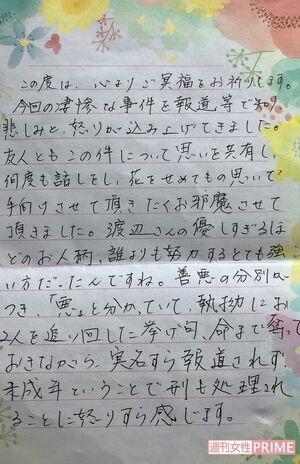 この度は、心よりご冥福をお祈りします。
今回の凄惨な事件を報道等で知り
悲しみと、怒りが込み上げてきました。
友人ともこの件について思いを共有し
何度も話しをし、花をせめてもの思いで
手向けさせて頂きたくお邪魔させて
頂きました。渡辺さんの優しすぎるほ
どのお人柄、誰よりも努力するとても強
い方だったんですね。善悪の分別が
つき、「悪」と分かっていて、執拗にお
2人を追い回した挙げ句、命まで奪って
おきながら、実名すら報道されず、
未成年ということで刑も処理され
ることに怒りすら感じます。
週刊女性PRIME